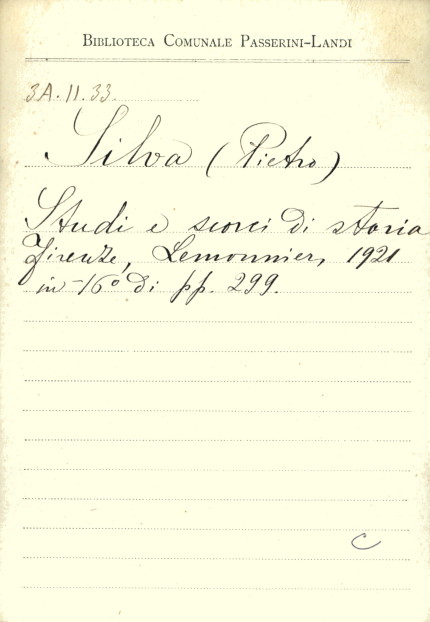 BIBLIOTECA COMUNALE PASSERINI-LANDI
3A.11.33.
Silva (Pietro)
Studi e scorci di storia
Firenze, Lemonnier, 1921
in-16° di pp. 299.
C